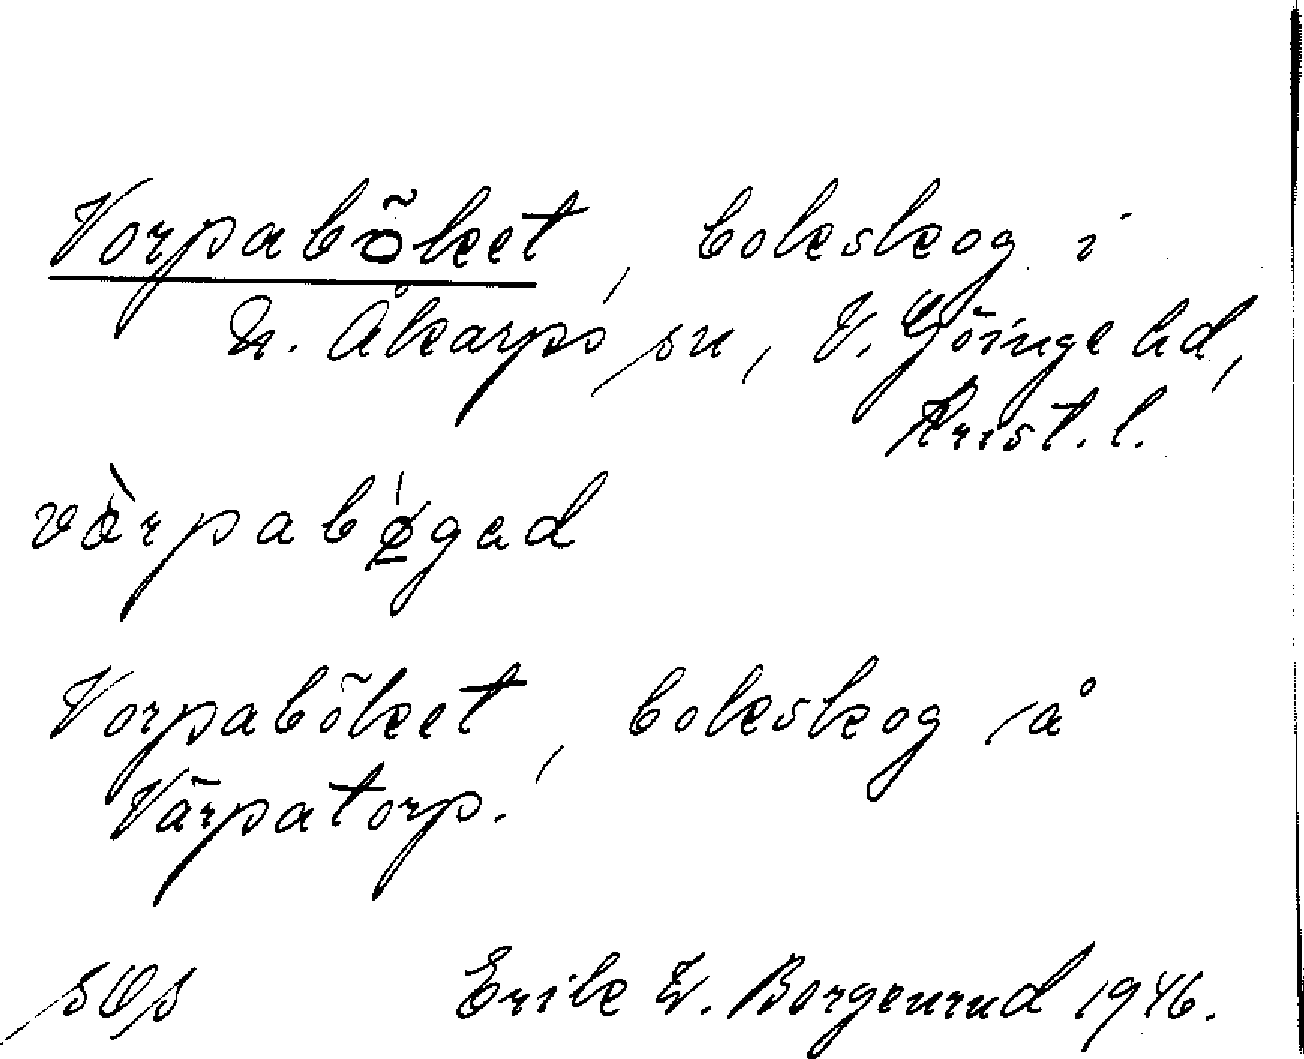 Vorpaböket, bokskog i
N. Åkarps sn, V. Göinge hd,
Krist. l.
vòrpabǿgad
Vorpaböket, bokskog å
Värpatorp.
Erik W. Borgenrud 1946.